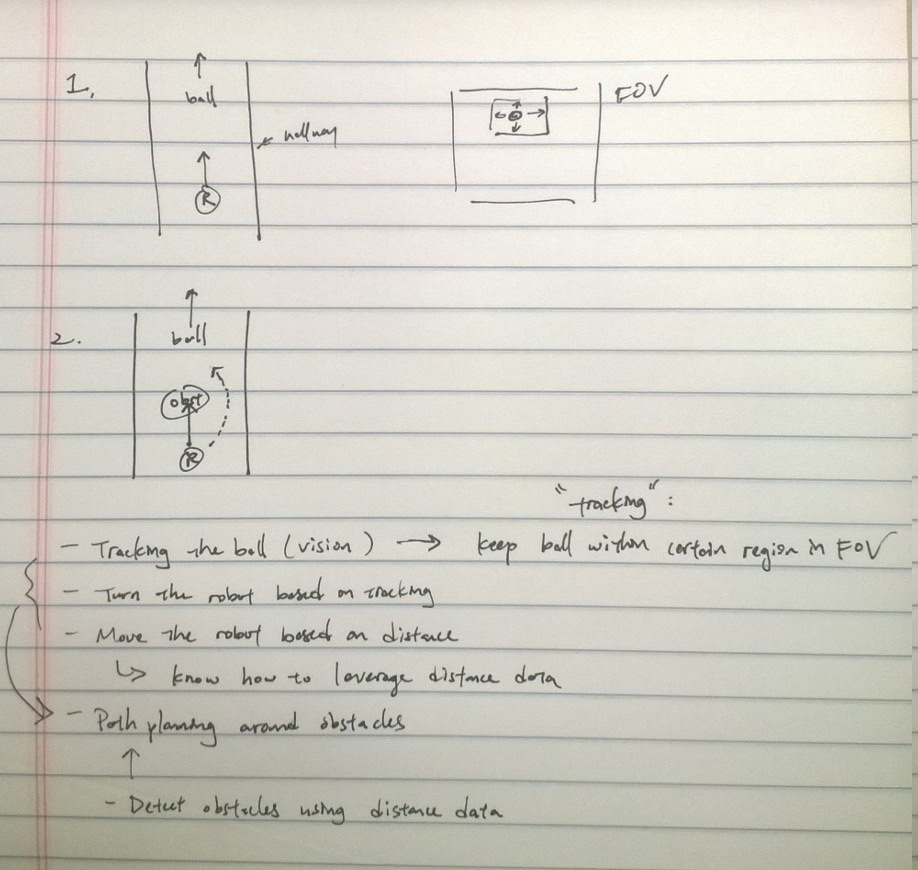 1.
ball
hallway
R
FOV
2.
ball
obst
R
"tracking":
- Tracking the ball (vision) → keep ball within certain region in FOV
- Turn the robot based on tracking
- Move the robot based on distance
↳ know how to leverage distance data
- Path planning around obstacles
↑
- Detect obstacles using distance data